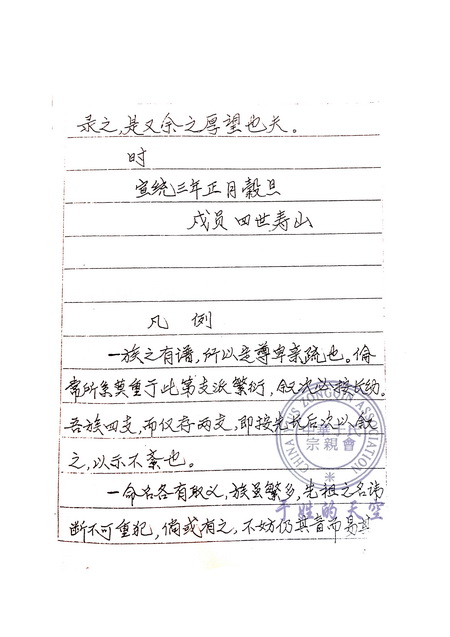 录之,是又余之厚望也夫。
时
宣统三年正月榖旦
成员 四世寿山
凡 例
一族之有谱,所以定尊卑亲疏也。伦
常所系莫重于此第支派繁衍,叙次必按长幼。
吾族四支,而仅存两支,即按先长后次以叙
之,以示不紊也。
一命名各有取义,族虽繁多,先祖之名讳
断不可重犯,倘或有之,不妨仍其音而易其
CHINA YU'S ZONGQIN ASSOCIATION
中華于氏
宗親會
于姓的天空